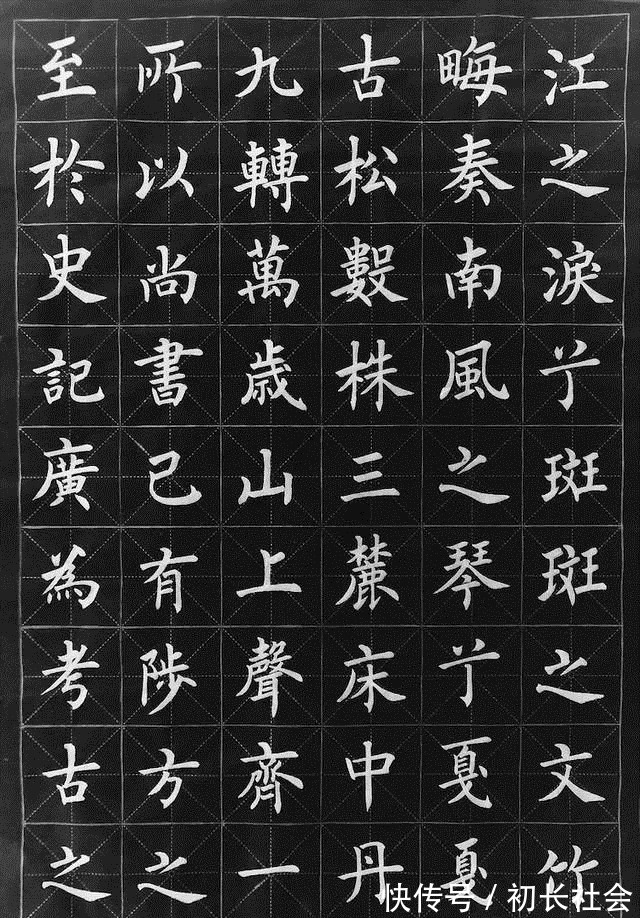 江之淚兮斑斑之文竹
畮奏南風之琴兮戛戛
古松數株三麓床中丹
九轉萬歳山上聲齊一
所以尚書己有陟方之
至於史記廣為考古之
快传号 / 初长社会